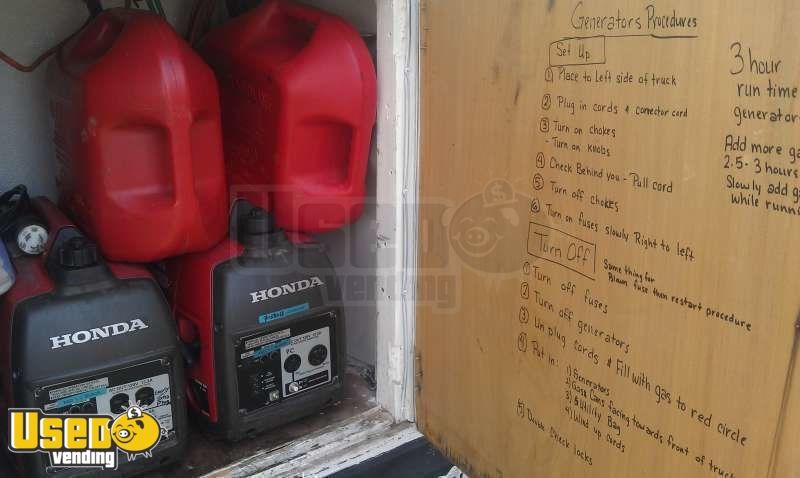 Generators Procedures
Set Up
① Place to Left side of truck
② Plug in cords & connector cord
③ Turn on chokes
- Turn on knobs
④ Check Behind you - Pull cord
⑤ Turn off chokes
⑥ Turn on fuses slowly Right to left
Turn Off
Same thing for
Blown fuse then restart procedure
① Turn off fuses
② Turn off generators
③ Un plug cords & Fill with gas to red circle
④ Put in: 1) Generators
2) Gas Cans facing towards front of truck
3) Utility Bag
4) Wind up cords
⑤ Double check locks
3 hour
run time
generator
Add more ga
2.5-3 hours
Slowly add g
while runni
HONDA
HONDA
USED
vending
USED
vending